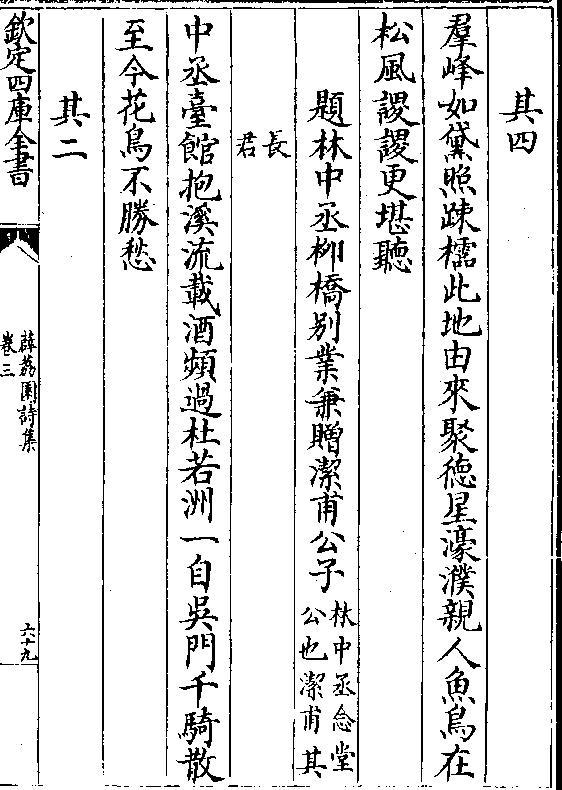 其四
羣峰如黛照疎櫺此地由來聚德星濠濮親人魚鳥在
松風謖謖更堪聽
題林中丞柳橋別業兼贈潔甫公子林中丞念堂
公也潔甫其
長
君
中丞臺館抱溪流載酒頻過杜若洲一自吳門千騎散
至今花鳥不勝愁
其二
欽定四庫全書
薜荔園詩集
卷三
六十九